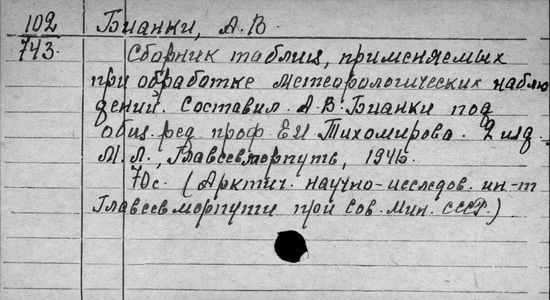 102 Бианки, А.В.
743. Сборник таблиц, применяемых
при обработке метеорологических наблю
дений. Составил А.В. Бианки под
общ. ред. проф. Е.И Тихомирова. 2 изд.
М. Л., Главсевморпуть, 1946.
70с. (Арктич. научно-исследов. ин-т
Главсевморпути при Сов. Мин. СССР.)